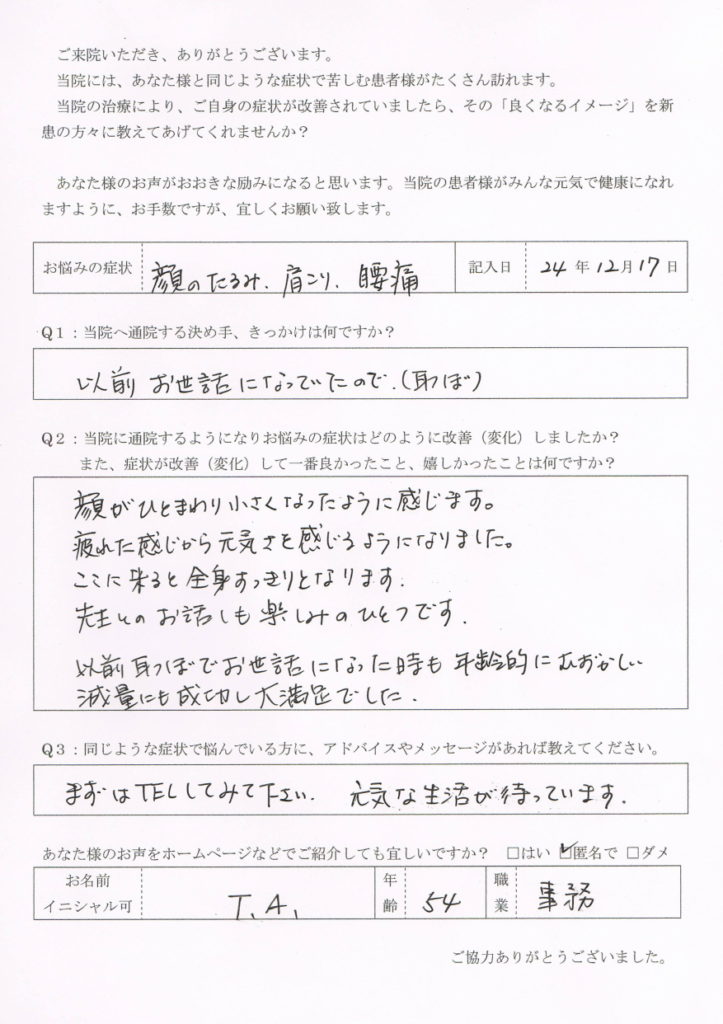 ご来院いただき、ありがとうございます。
当院には、あなた様と同じような症状で苦しむ患者様がたくさん訪れます。
当院の治療により、ご自身の症状が改善されていましたら、その「良くなるイメージ」を新
患の方々に教えてあげてくれませんか？
あなた様のお声がおおきな励みになると思います。当院の患者様がみんな元気で健康になれ
ますように、お手数ですが、宜しくお願い致します。
お悩みの症状 顔のたるみ、肩こり、腰痛 記入日 24年12月17日
Q1：当院へ通院する決め手、きっかけは何ですか？
以前 お世話になっていたので.(耳つぼ)
Q2：当院に通院するようになりお悩みの症状はどのように改善（変化）しましたか？
また、症状が改善（変化）して一番良かったこと、嬉しかったことは何ですか？
顔がひとまわり小さくなったように感じます。
疲れた感じから元気さを感じるようになりました。
ここに来ると全身すっきりとなります.
先生とのお話しも楽しみのひとつです.
以前耳つぼでお世話になった時も 年齢的にむずかしい
減量にも成功し大満足でした.
Q3：同じような症状で悩んでいる方に、アドバイスやメッセージがあれば教えてください。
まずはTELしてみて下さい. 元気な生活が待っています.
あなた様のお声をホームページなどでご紹介しても宜しいですか？ □はい ☑匿名で □ダメ
お名前 イニシャル可 T.A. 年齢 54 職業 事務
ご協力ありがとうございました。